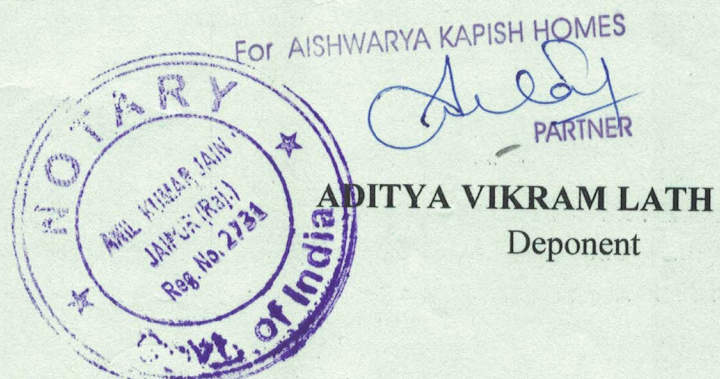 For AISHWARYA KAPISH HOMES
PARTNER
ADITYA VIKRAM LATH
Deponent
NOTARY
ANIL KUMAR JAIN
JAIPUR (Raj.)
Reg. No. 2731
Govt. of India